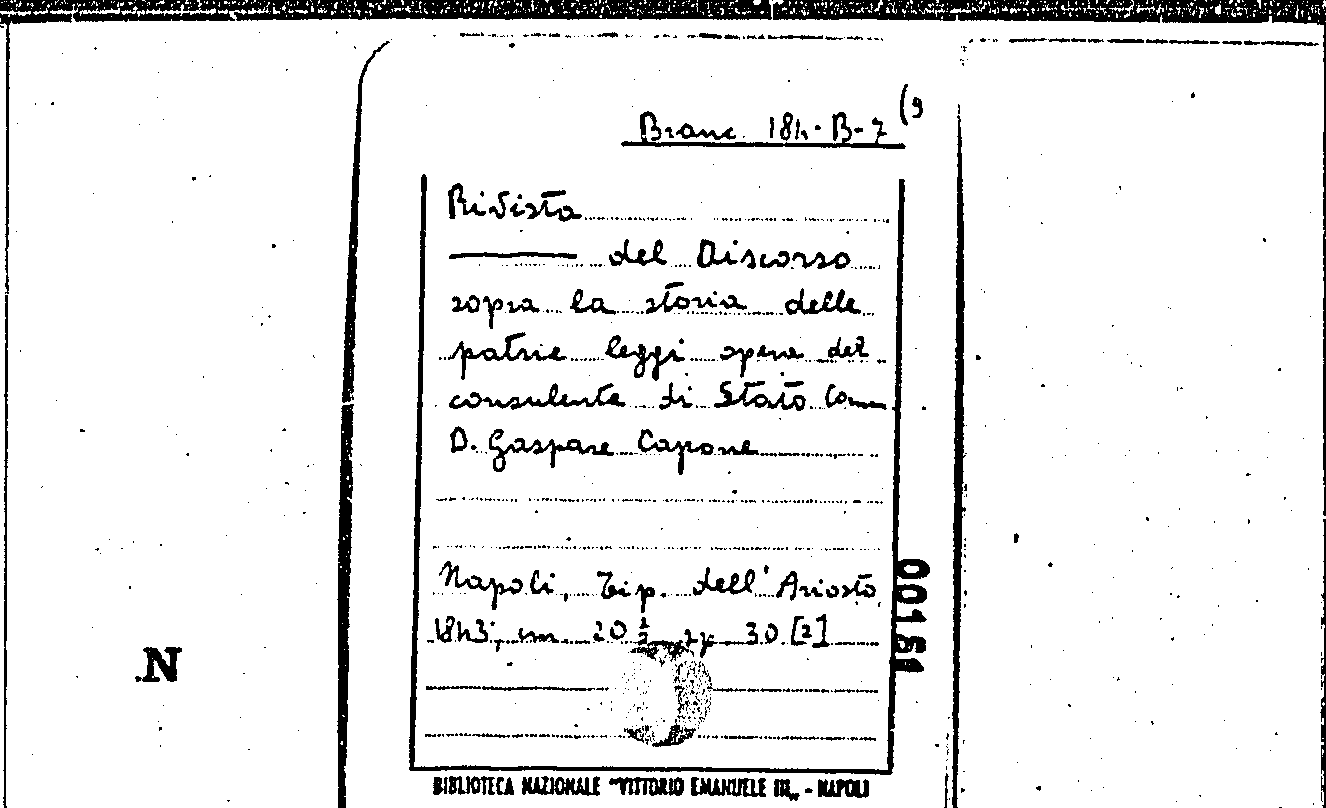 Branc. 184-B-7 (9
Rivista
——— del Discorso
sopra la storia delle
patrie leggi opera del
consulente di Stato Comm.
D. Gaspare Capone
Napoli, Tip. dell'Ariosto
1843; cm. 20 ½ pp. 30 [2]
001561
N
BIBLIOTECA NAZIONALE "VITTORIO EMANUELE III„ - NAPOLI